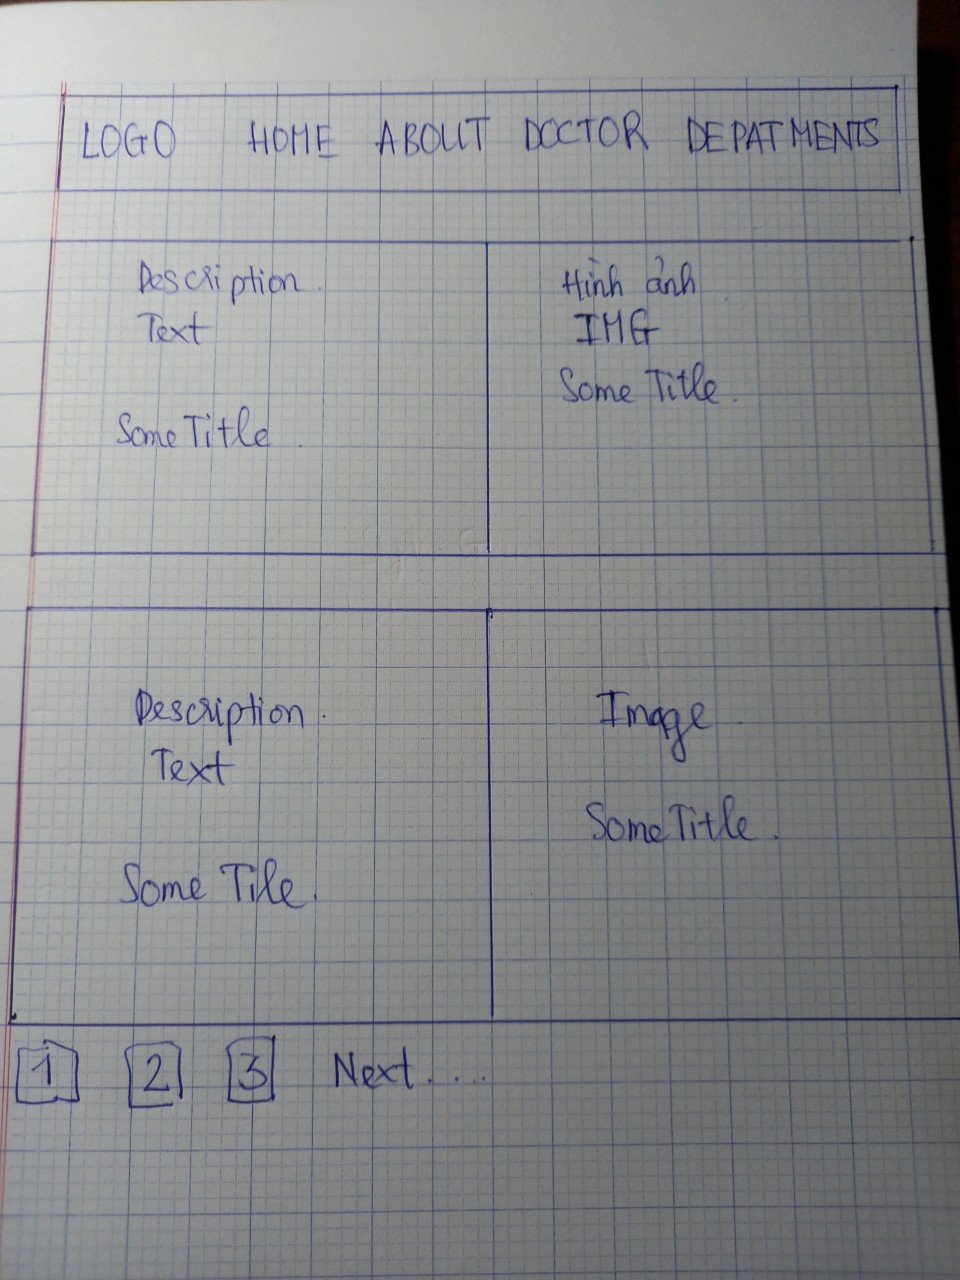 LOGO HOME ABOUT DOCTOR DEPATMENTS
Description.
Text
Some Title.
Hình ảnh
IMG
Some Title.
Description.
Text
Some Tile.
Image
Some Title.
1 2 3 Next....